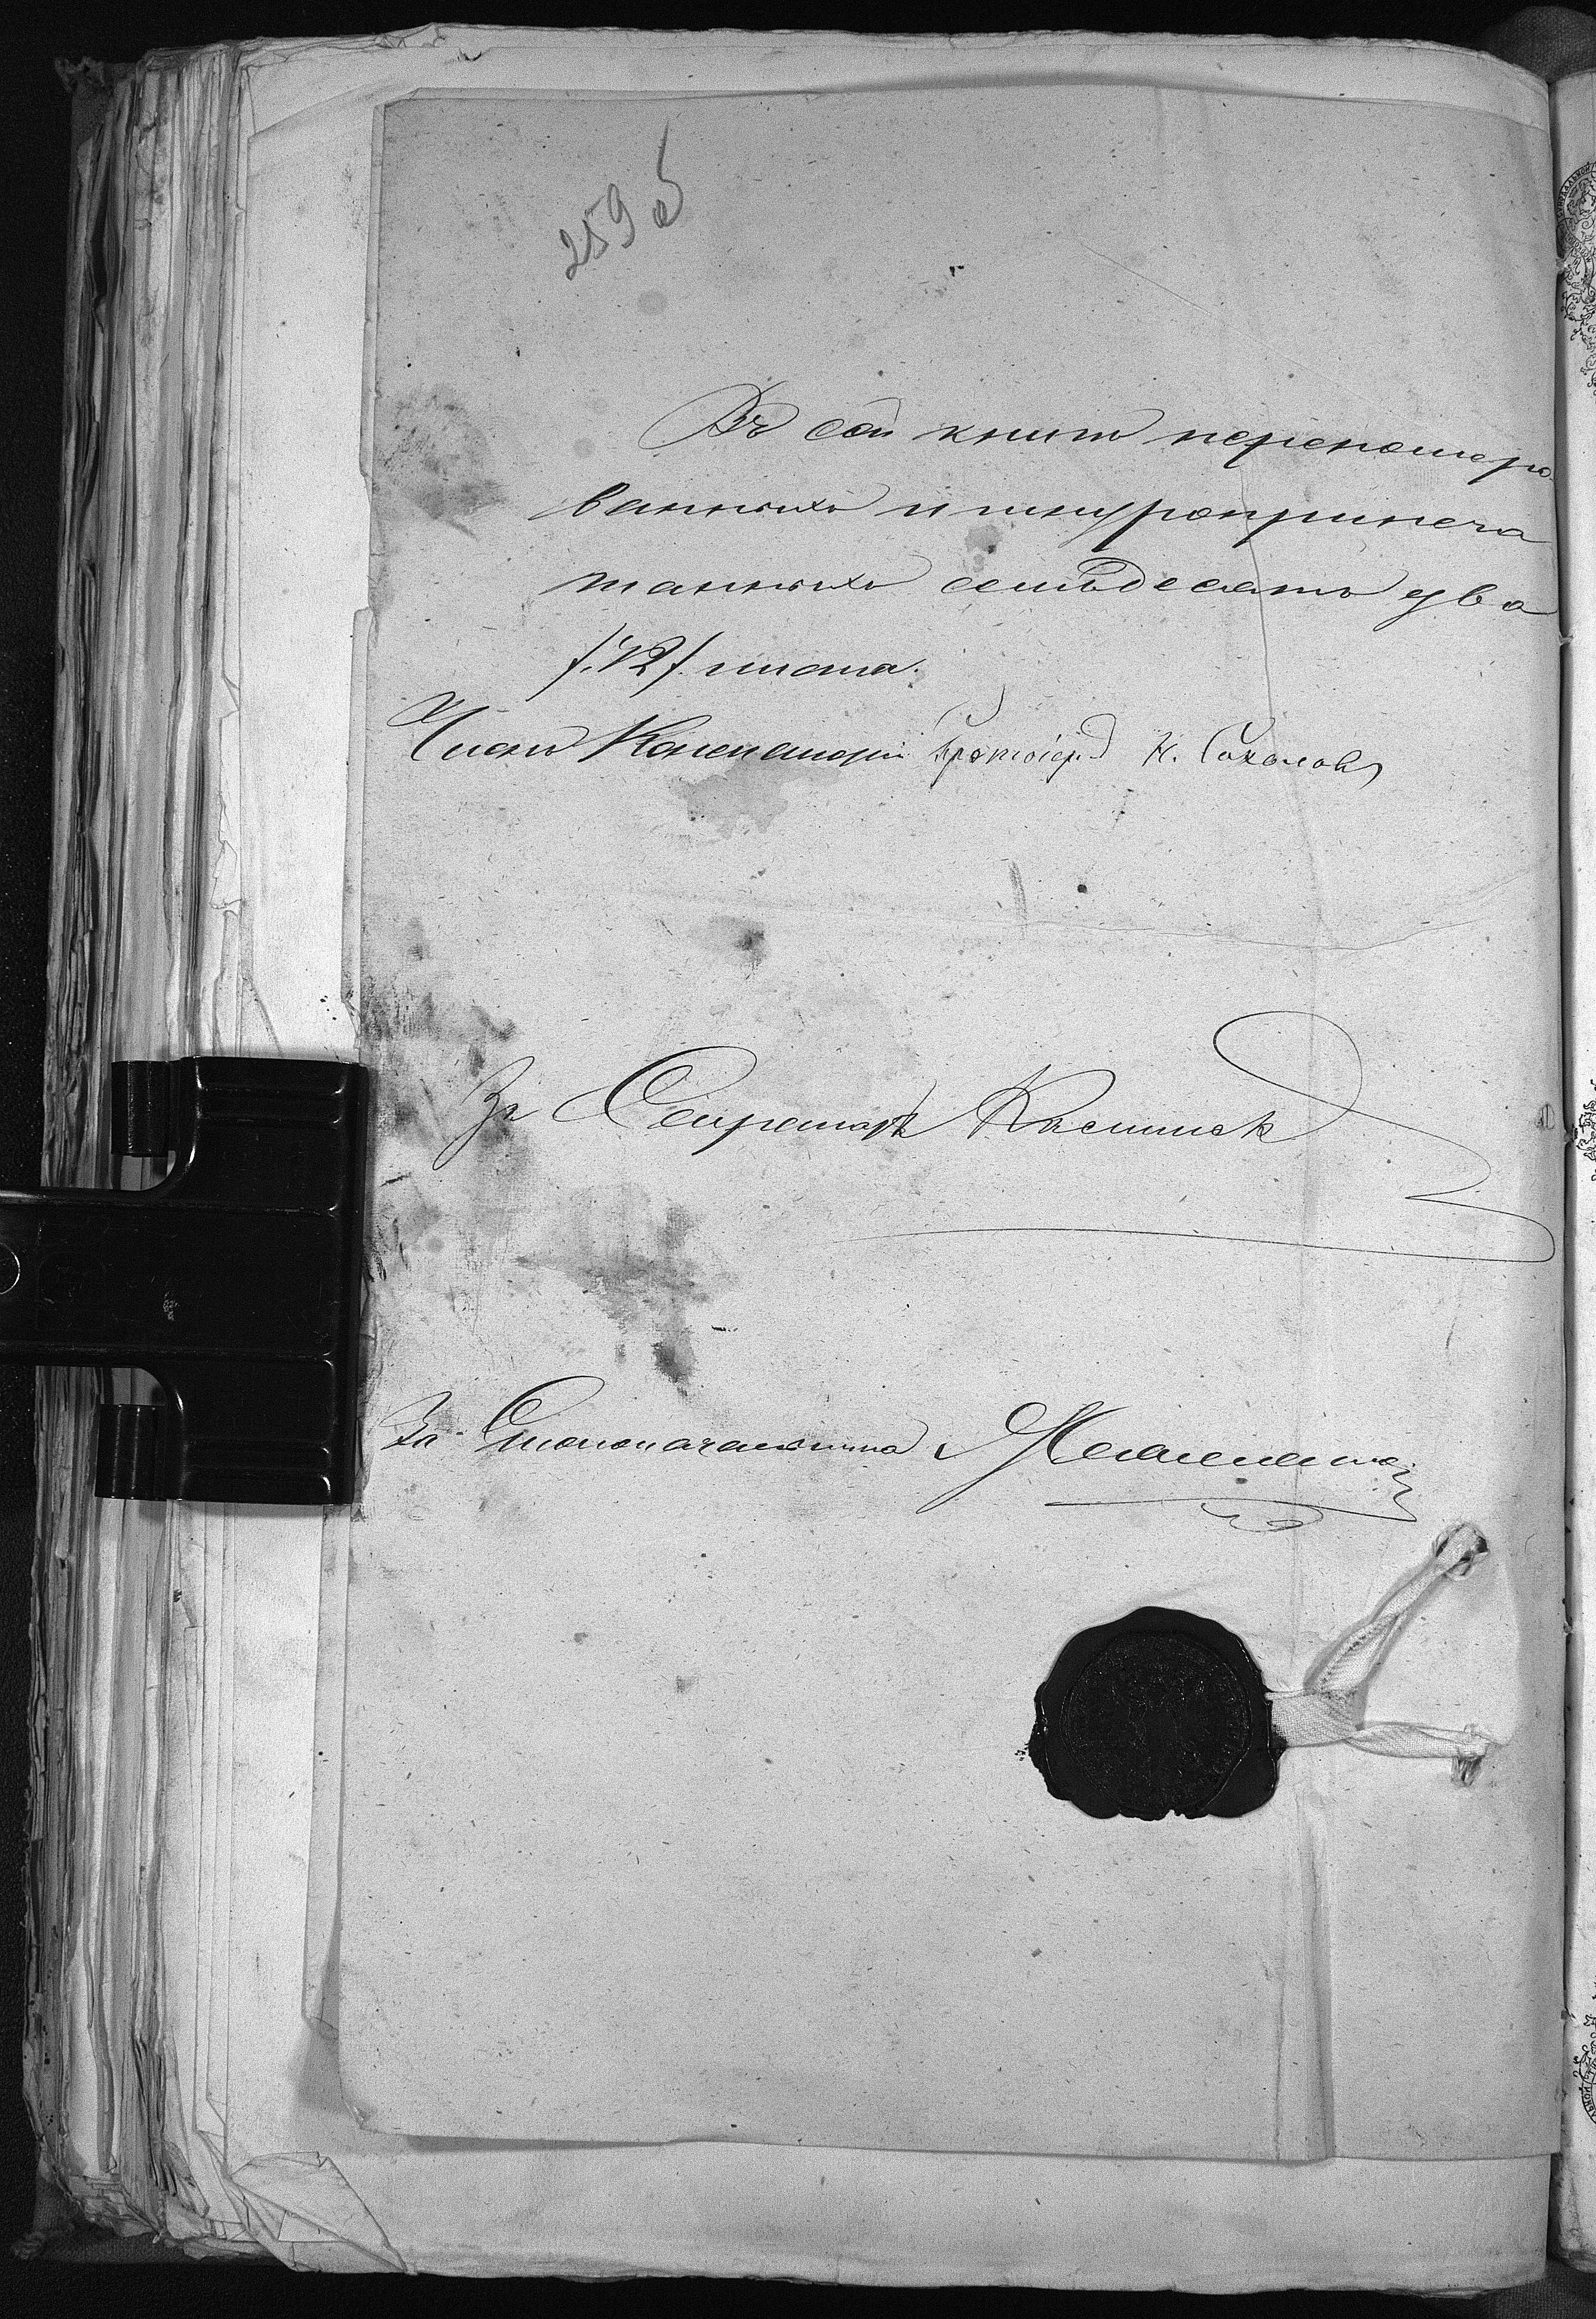 259 об
Въ сей книгѣ перенумеро-
ванныхъ и шнуроприпеча
танныхъ семьдесятъ два
/:72:/ листа.
Членъ Консисторіи Протоіер. Н. Соколовъ
За Секретаря
За Столоначальника